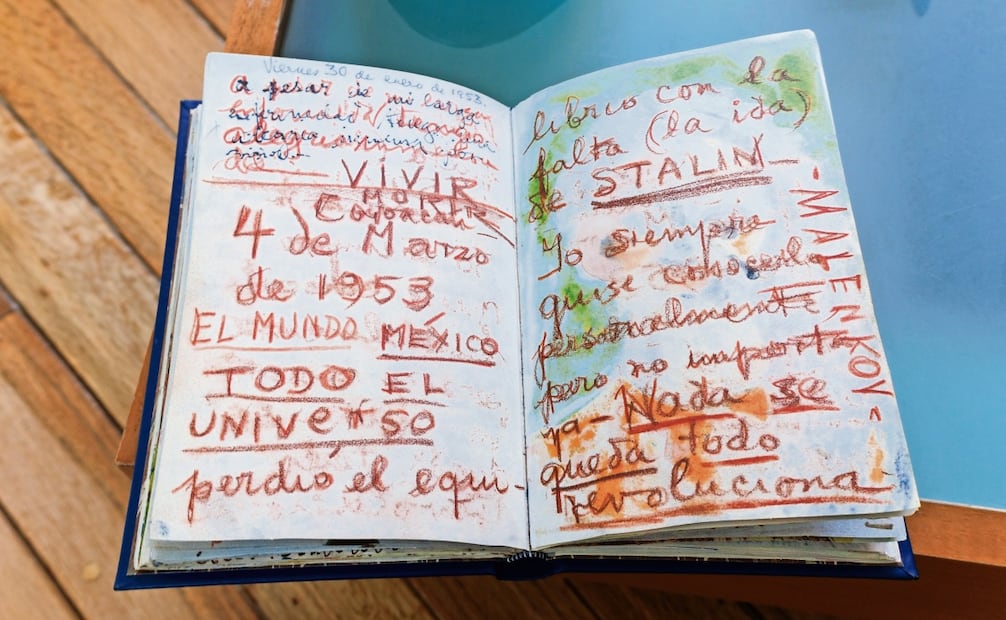 Viernes 30 de enero de 1953.
A pesar de mi larga
enfermedad,
alegria
VIVIR
MORIR
Coyoacan
4 de Marzo
de 1953
EL MUNDO MÉXICO
TODO EL
UNIVERSO
perdió el equi-
librio con la
falta (la ida)
de STALIN -
Yo siempre
quise conocerlo
personalmente
pero no importa
ya - Nada se
queda todo
revoluciona
-MALENKOV-